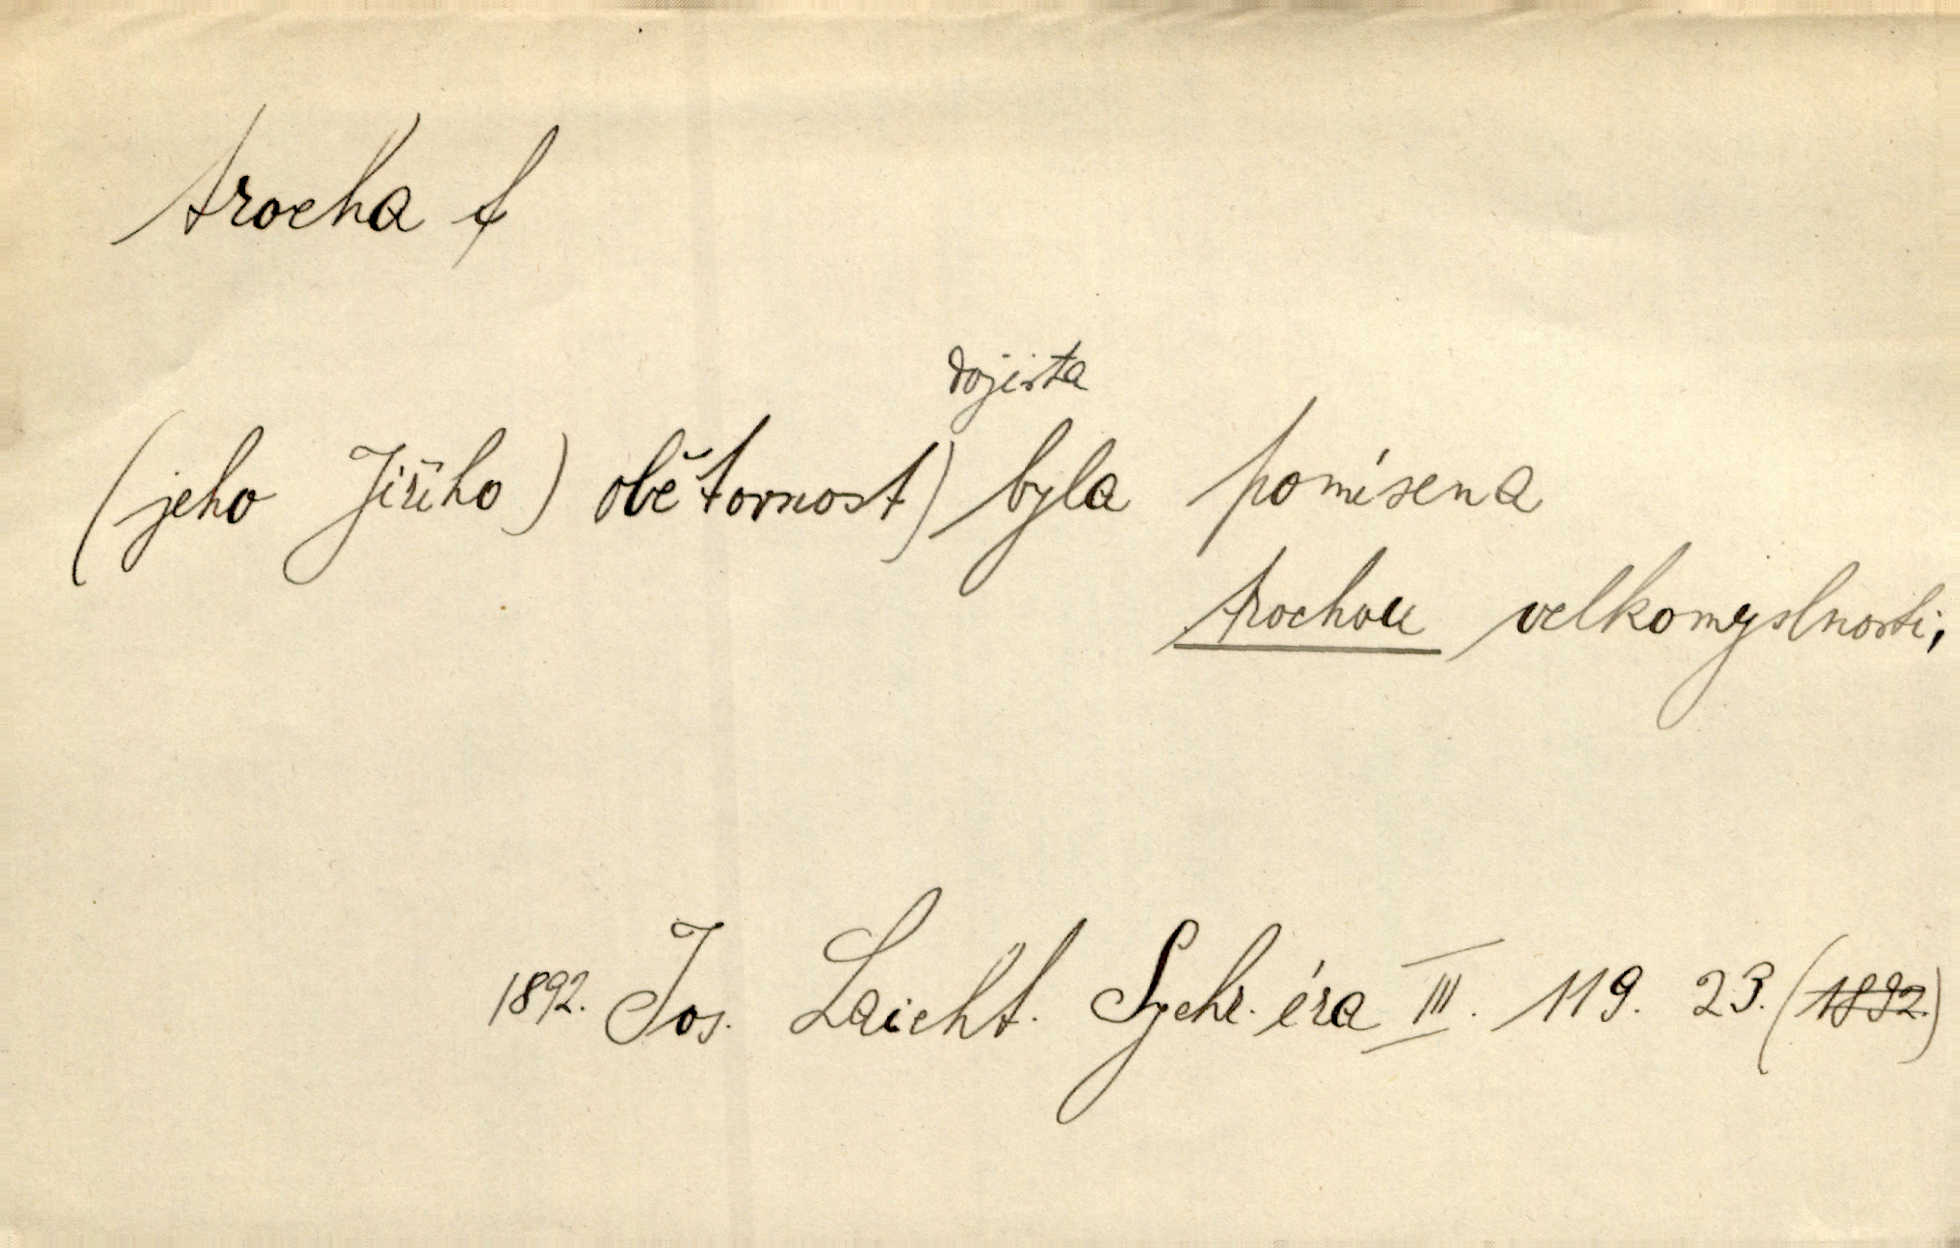 trocha f
dojista
(jeho Jiřího) obětovnost) byla pomísena
trochou velkomyslnosti;
1892. Jos. Laicht. Sychr. éra III. 119. 23. (1892.)